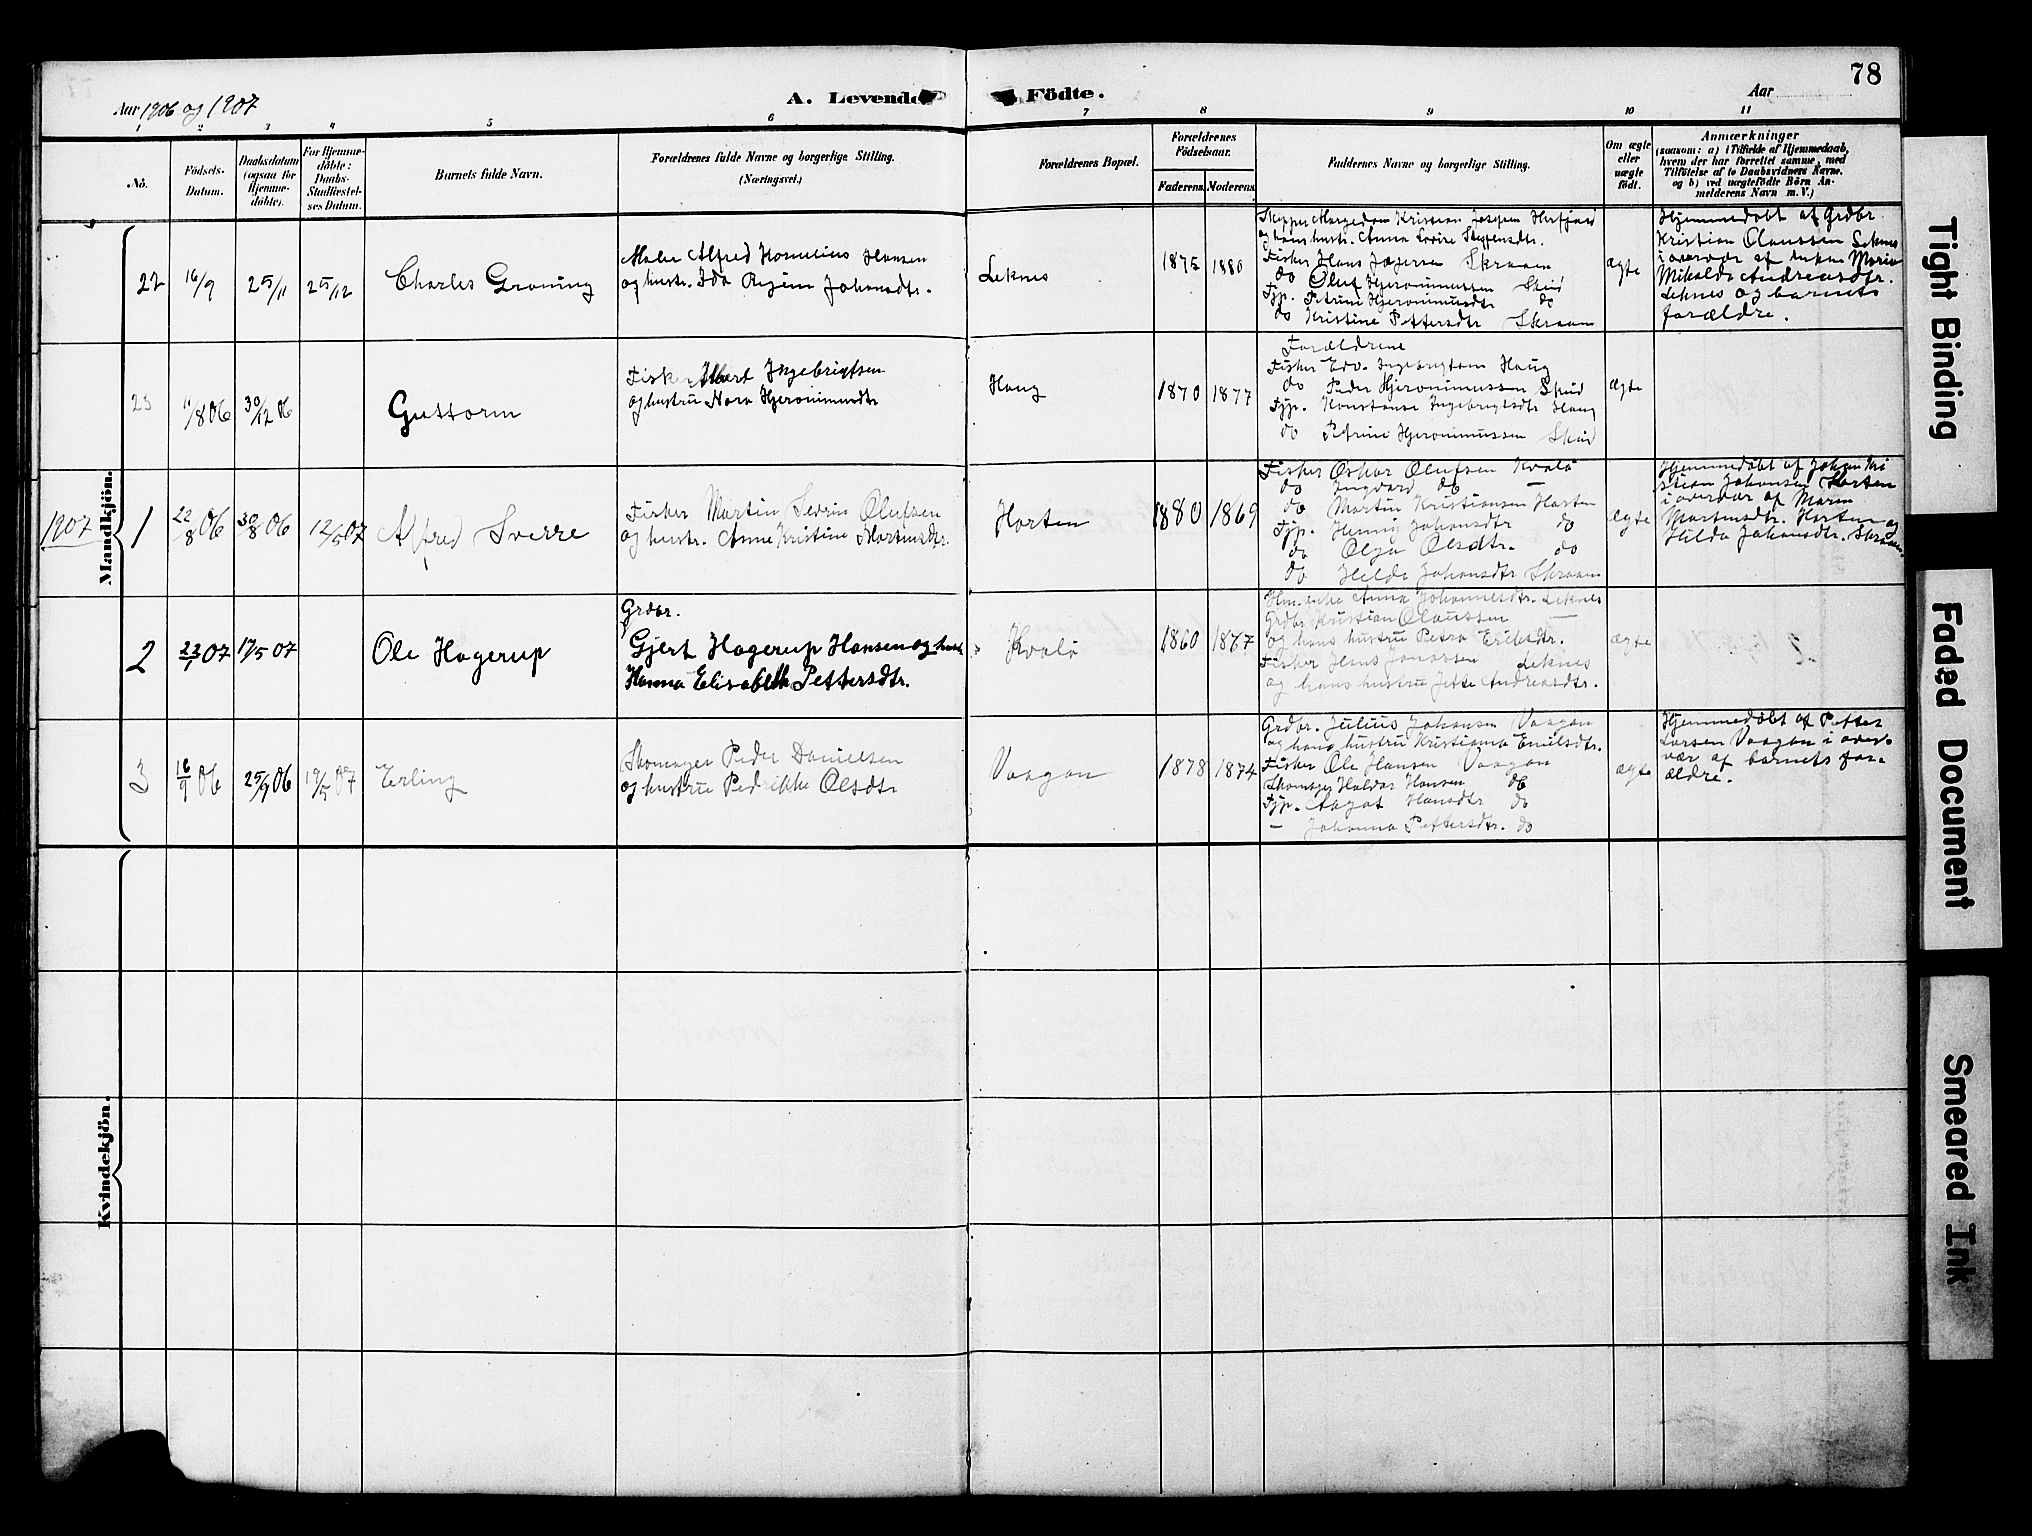 78
Aar 1906 og 1907
A. Levende Födte.
Aar
1 2 3 4 5 6 7 8 9 10 11
No.
Födsels-Datum.
Daabsdatum (ogsaa for Hjemme-döbte).
For Hjemme-döbte: Daabs-Stadfæstel-ses Datum.
Barnets fulde Navn.
Forældrenes fulde Navne og borgerlige Stilling.
(Næringsvei.)
Forældrenes Bopæl.
Forældrenes Födselsaar.
Faderens. Moderens.
Faddernes Navne og borgerlige Stilling.
Om ægte eller uægte födt.
Anmærkninger
(saasom: a) i Tilfælde af Hjemmedaab,
hvem der har forrettet samme, med
Tilföielse af to Daabsvidners Navne.
og b) ved uægtefödte Börn An-
melderens Navn m. V.)
Mandkjön.
22
16/9
25/11
25/12
Charles Groning
Maler Alfred Kornelius Hansen
og hustr. Ida Regine Johansdtr.
Leknes
1875
1880
Skipper Kristian
og hans hustr. Anna
Fisker Hans Skraam
do Oluf Hjeronimussen Skid
Fyp. Petrine Hjeronimusdtr do
do Kristine Pettersdtr Skraam
ægte
Hjemmedöbt af Grdbr.
Kristian Claussen Leknes
i overvær af enken Maria
Mikalde Andreasdtr.
Leknes og barnets
forældre.
23
11/8 06
30/12 06
Guttorm
Fisker Albert Ingebrigtsen
og hustru Nora Hjeronimusdtr
Haug
1870
1877
Forældrene
Fisker Edv. Ingebrigtsen Haug
do Peder Hjeronimussen Skid
Fyp. Konstanse Ingebrigtsdtr Haug
do Petrine Hjeronimussen Skid
ægte
1907
1
22/8 06
30/8 06
12/5 07
Alfred Sverre
Fisker Martin Severin Olufsen
og hustr. Anne Kristine Martinsdtr.
Horten
1880
1869
Fisker Oskar Olufsen Kvalö
do Ingvard do —
do Martin Kristiansen Horten
Fyp. Henny Johansdtr do
do Olga Olsdtr. do
do Hilda Johansdtr Skraam
ægte
Hjemmedöbt af Johan Kri
stian Johansen Horten
i overvær af Maren
Martinsdtr. Horten og
Hilda Johansdtr. Skraam.
2
23/1 07
17/5 07
Ole Hagerup
Grdbr.
Gjert Hagerup Hansen og hust
Hanna Elisabeth Pettersdtr.
Kvalö
1860
1867
Hm. enke Anna Johannesdtr. Leknes
Grdbr Kristian Claussen —
og hans hustru Petra Eriksdtr.
Fisker Jens Jonassen Leknes
og hans hustru Jette Andreasdtr.
ægte
3
16/9 06
25/9 06
19/5 07
Erling
Skomager Peder Danielsen
og hustru Pedrikke Olsdtr
Vaagan
1878
1874
Grdbr. Julius Johansen Vaagan
og hans hustru Kristianna Emilsdtr.
Fisker Ole Hansen Vaagan
Skomager Haldor Hansen do
Fyp. Aagot Hansdtr do
— Johanna Pettersdtr. do
ægte
Hjemmedöbt af Petter
Larsen Vaagan i over-
vær af barnets for-
ældre.
Kvindekjön.
Tight Binding
Faded Document
Smeared Ink